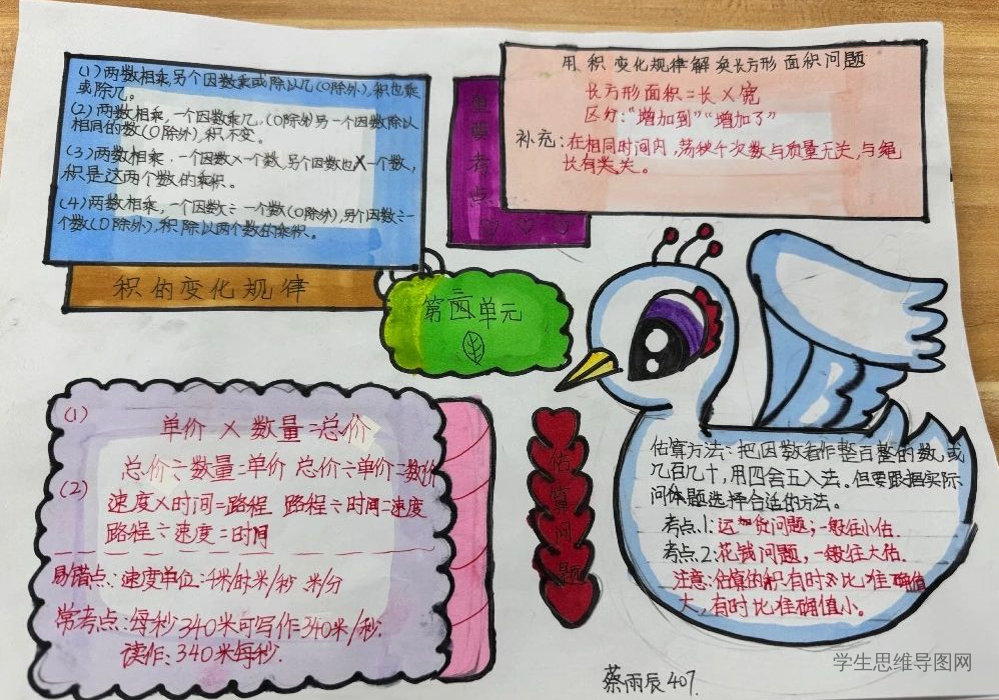 (1)两数相乘,另个因数乘或除以几(0除外),积也乘
或除几。
(2)两数相乘,一个因数乘几,(0除外)另一个因数除以
相同的数(0除外),积不变。
(3)两数相乘,一个因数×一个数,另个因数也×一个数,
积是这两个数的乘积。
(4)两数相乘,一个因数÷一个数(0除外),另个因数÷一
个数(0除外),积除以两个数的乘积。
积的变化规律
考点
用积变化规律解决长方形面积问题
长方形面积=长×宽
区分:“增加到”“增加了”
补充:在相同时间内,荡秋千次数与质量无关,与绳
长有关。
第四单元
(1)
单价×数量=总价
总价÷数量=单价 总价÷单价=数价
(2)
速度×时间=路程 路程÷时间=速度
路程÷速度=时间
易错点:速度单位:千米/时 米/秒 米/分
常考点:每秒340米可写作340米/秒.
读作:340米每秒.
估算问题
估算方法:把因数看作整百整的数,或
几百几十,用四舍五入法。但要跟据实际
问题选择合适的方法。
考点1:运货问题;一般往小估.
考点2:花钱问题,一般往大估.
注意:估算的积有时比准确值
大,有时比准确值小。
蔡雨辰 407.
学生思维导图网